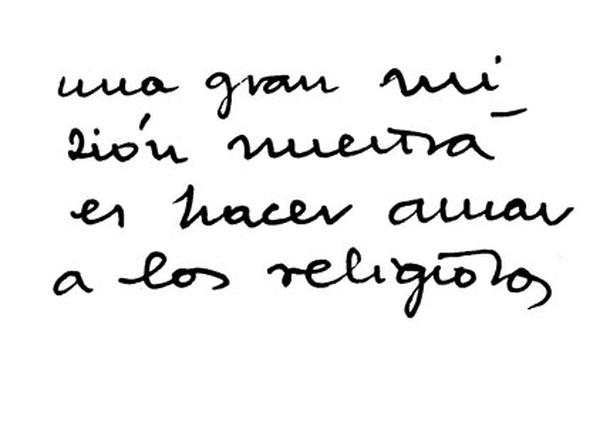 una gran mi-
sión nuestra
es hacer amar
a los religiosos